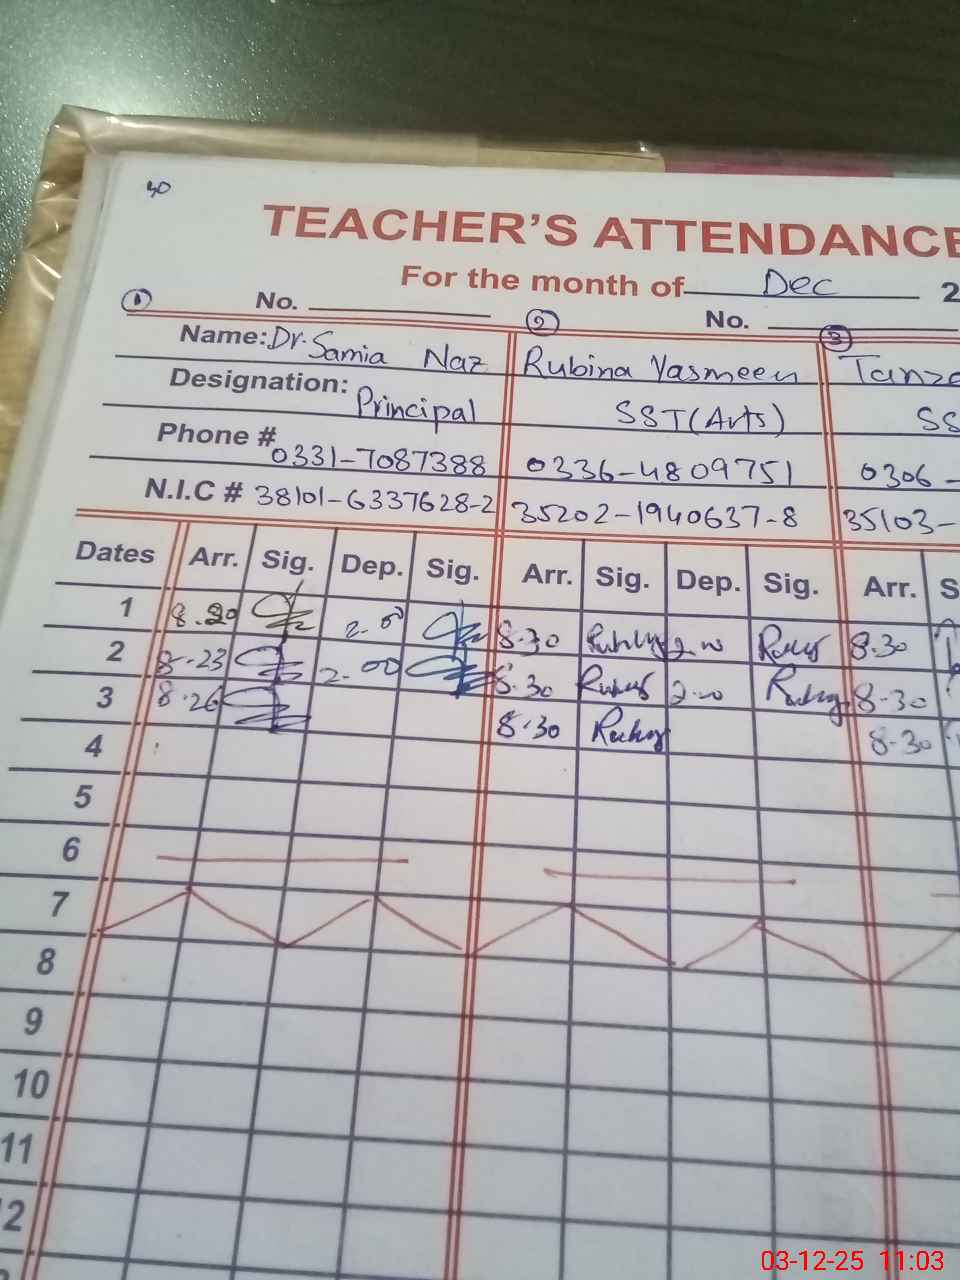 40
TEACHER'S ATTENDANCE
For the month of Dec 2
1 No. 2 No. 3
Name: Dr. Samia Naz Rubina Yasmeen Tanz
Designation: Principal SST(Arts) SS
Phone # 0331-7087388 0336-4809751 0306-
N.I.C # 38101-6337628-2 35202-1940637-8 35103-
Dates Arr. Sig. Dep. Sig. Arr. Sig. Dep. Sig. Arr. S
1 8.20 2.00 8.30 2.00 8.30
2 8.23 2.00 8.30 2.00 8.30
3 8.26 8.30 8.30
4
5
6
7
8
9
10
11
12
03-12-25 11:03